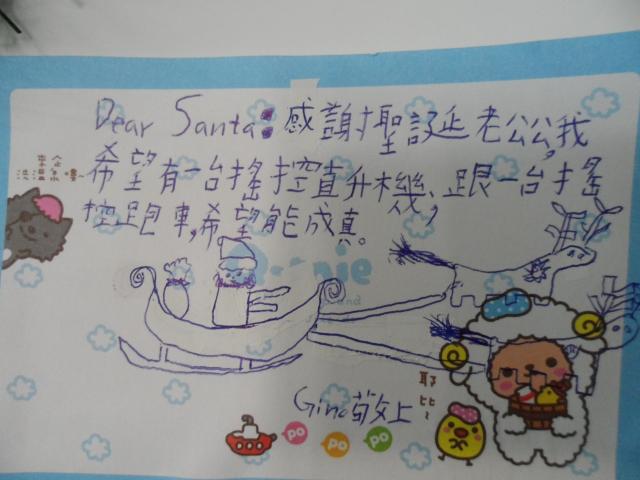 Dear Santa:感謝聖誕老公公,我
希望有一台搖控直升機、跟一台搖
控跑車,希望能成真。
Gino敬上
耶比~
po
po
po